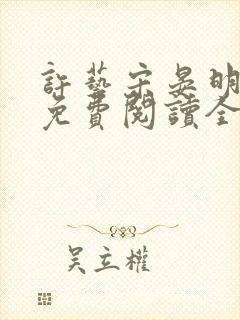 許藝宗晏明
免費閱讀全
吳立權